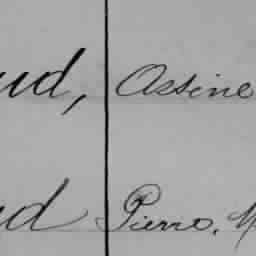 ud, Assine
ud Pierre, M